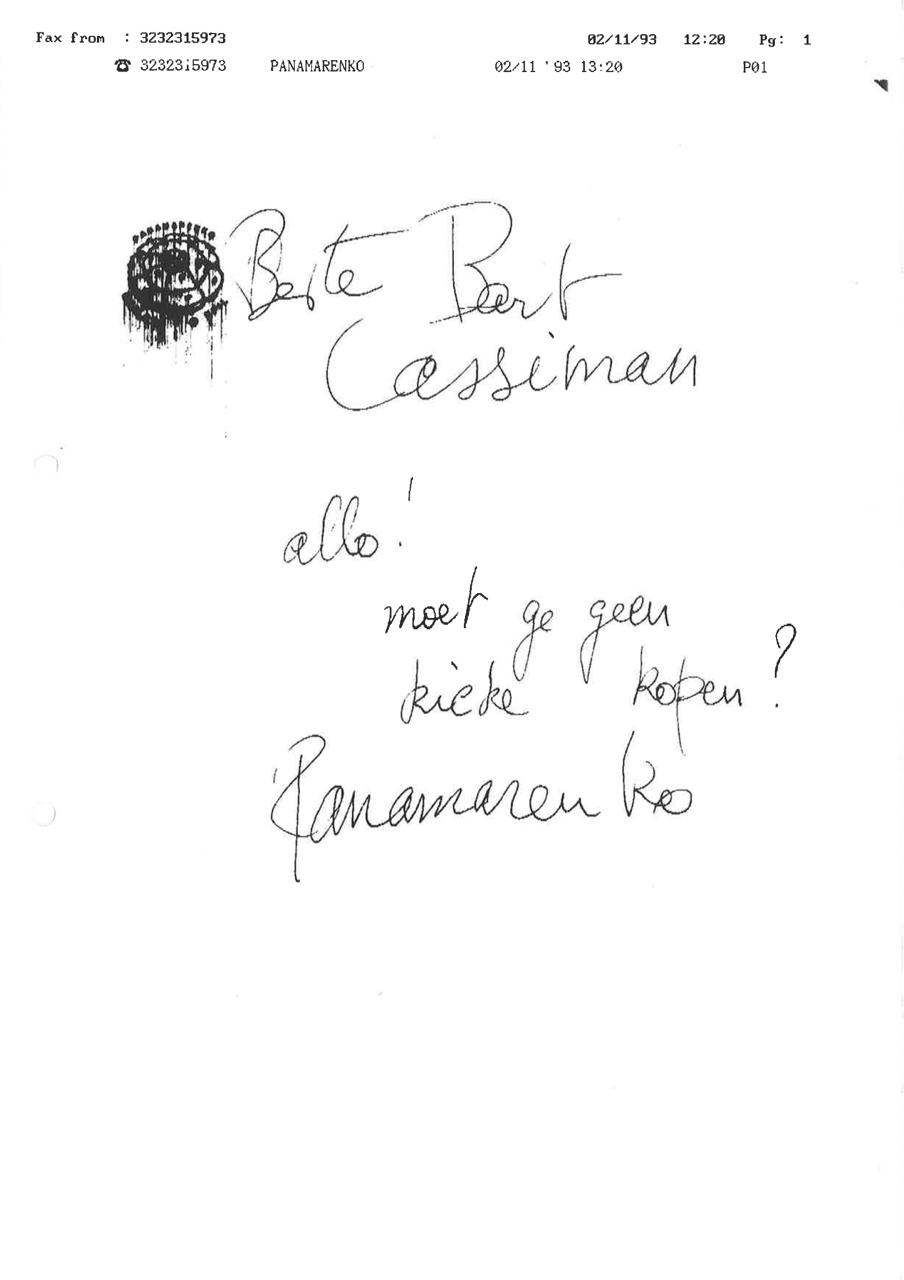 Fax from : 3232315973 02/11/93 12:20 Pg: 1
☎ 3232315973 PANAMARENKO 02/11 '93 13:20 P01
PANAMARENKO
Beste Bart
Cassiman
allo!
moet ge geen
kieke kopen?
Panamarenko